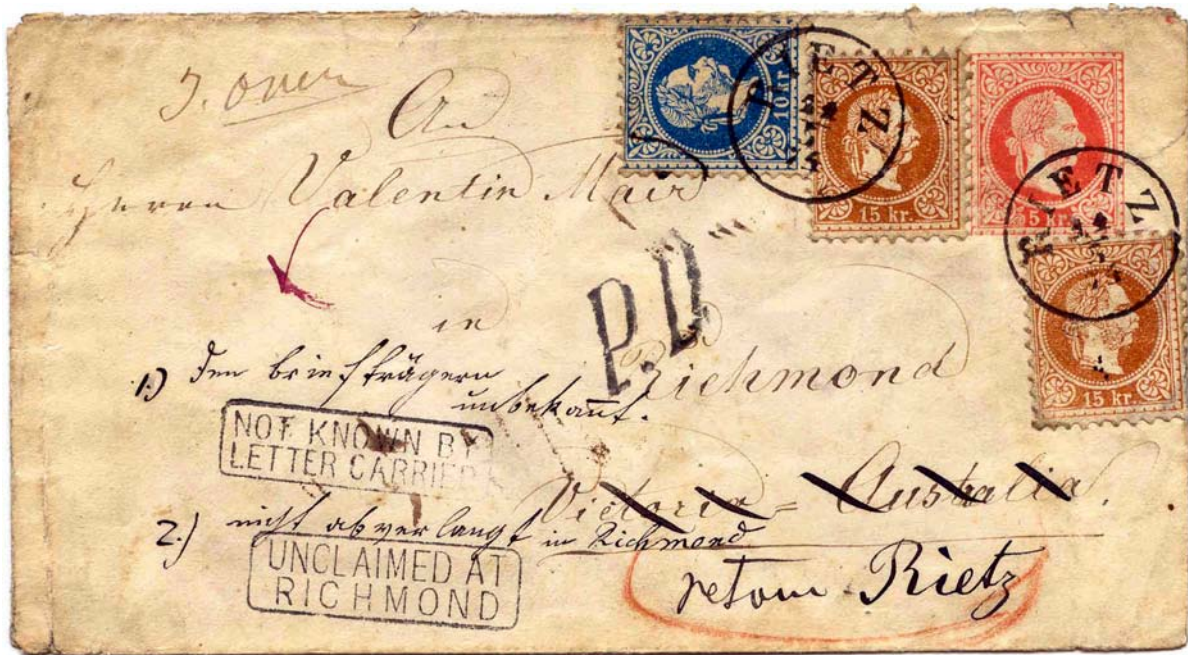 An
Herrn Valentin Mair
in
Richmond
Victoria = Australia.
1.) den briefträgern
unbekannt.
NOT KNOWN BY
LETTER CARRIER
2.) nicht abverlangt in Richmond
UNCLAIMED AT
RICHMOND
retour Rietz
P.D
10 kr.
RIETZ
15 kr.
5 kr.
RIETZ
15 kr.